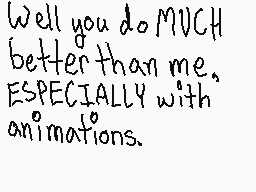 Well you do MUCH
better than me,
ESPECIALLY with
animations.